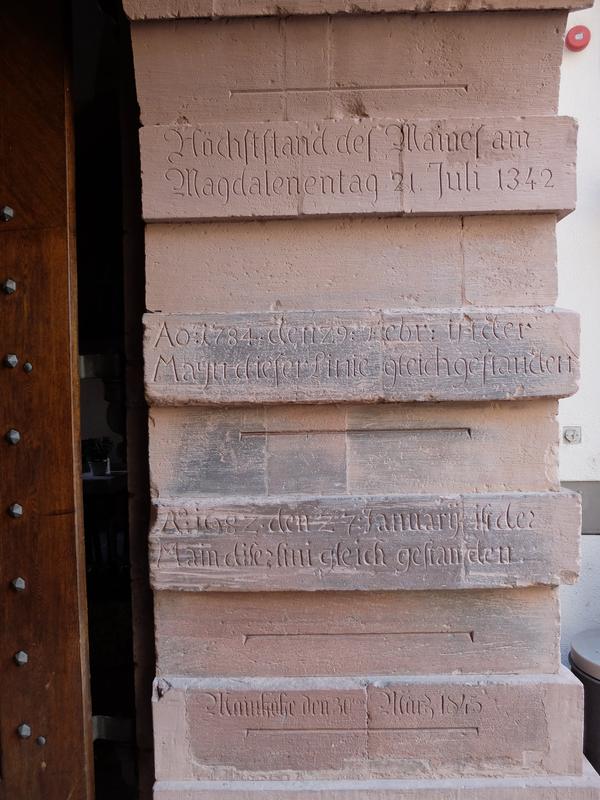 Höchststand des Maines am
Magdalenentag 21. Juli 1342
Ao: 1784. den 29: Febr: ist der
Mayn dieser Linie gleich gestanden
A: 1682 den 27 January ist der
Main diser lini gleich gestanden
Mainhöhe den 30 März 1845